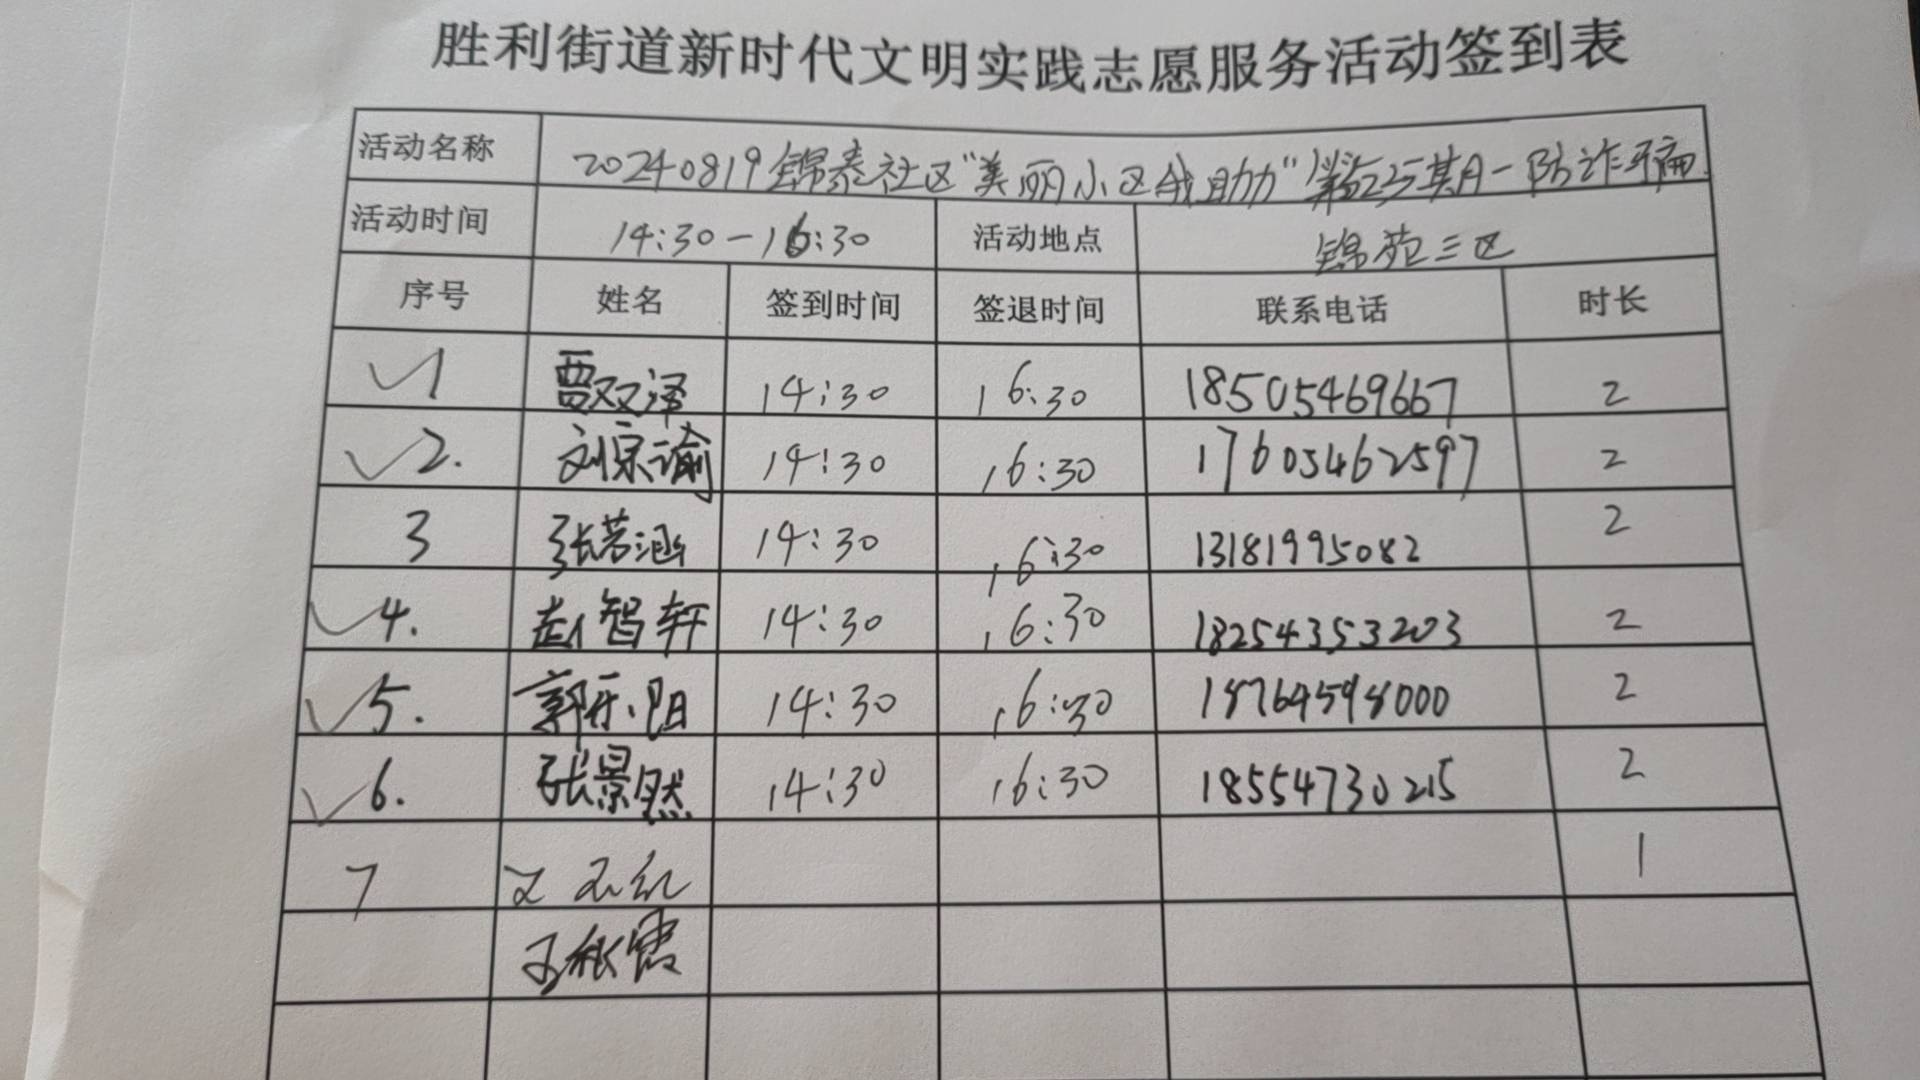 胜利街道新时代文明实践志愿服务活动签到表
活动名称 20240819锦泰社区"美丽小区我助力"第25期一防诈骗
活动时间 14:30-16:30 活动地点 锦苑三区
序号 姓名 签到时间 签退时间 联系电话 时长
1 贾双泽 14:30 16:30 18505469667 2
2. 刘宗谕 14:30 16:30 17605462597 2
3 张若涵 14:30 16:30 13181995082 2
4. 赵智轩 14:30 16:30 18254353203 2
5. 郭乐阳 14:30 16:30 18764598000 2
6. 张景然 14:30 16:30 18554730215 2
7 1